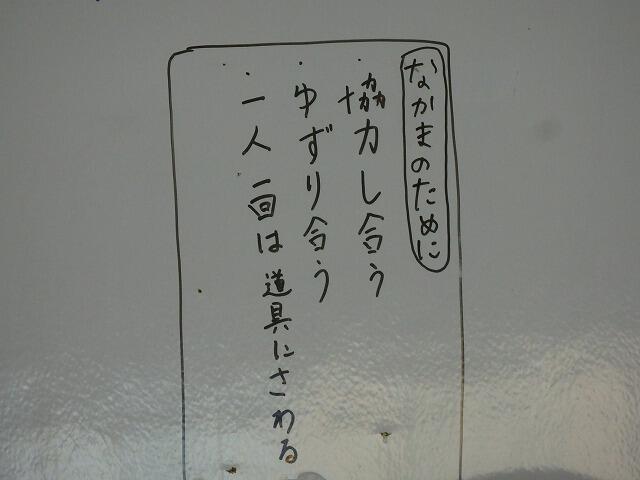 なかまのために
・協力し合う
・ゆずり合う
・一人一回は道具にさわる